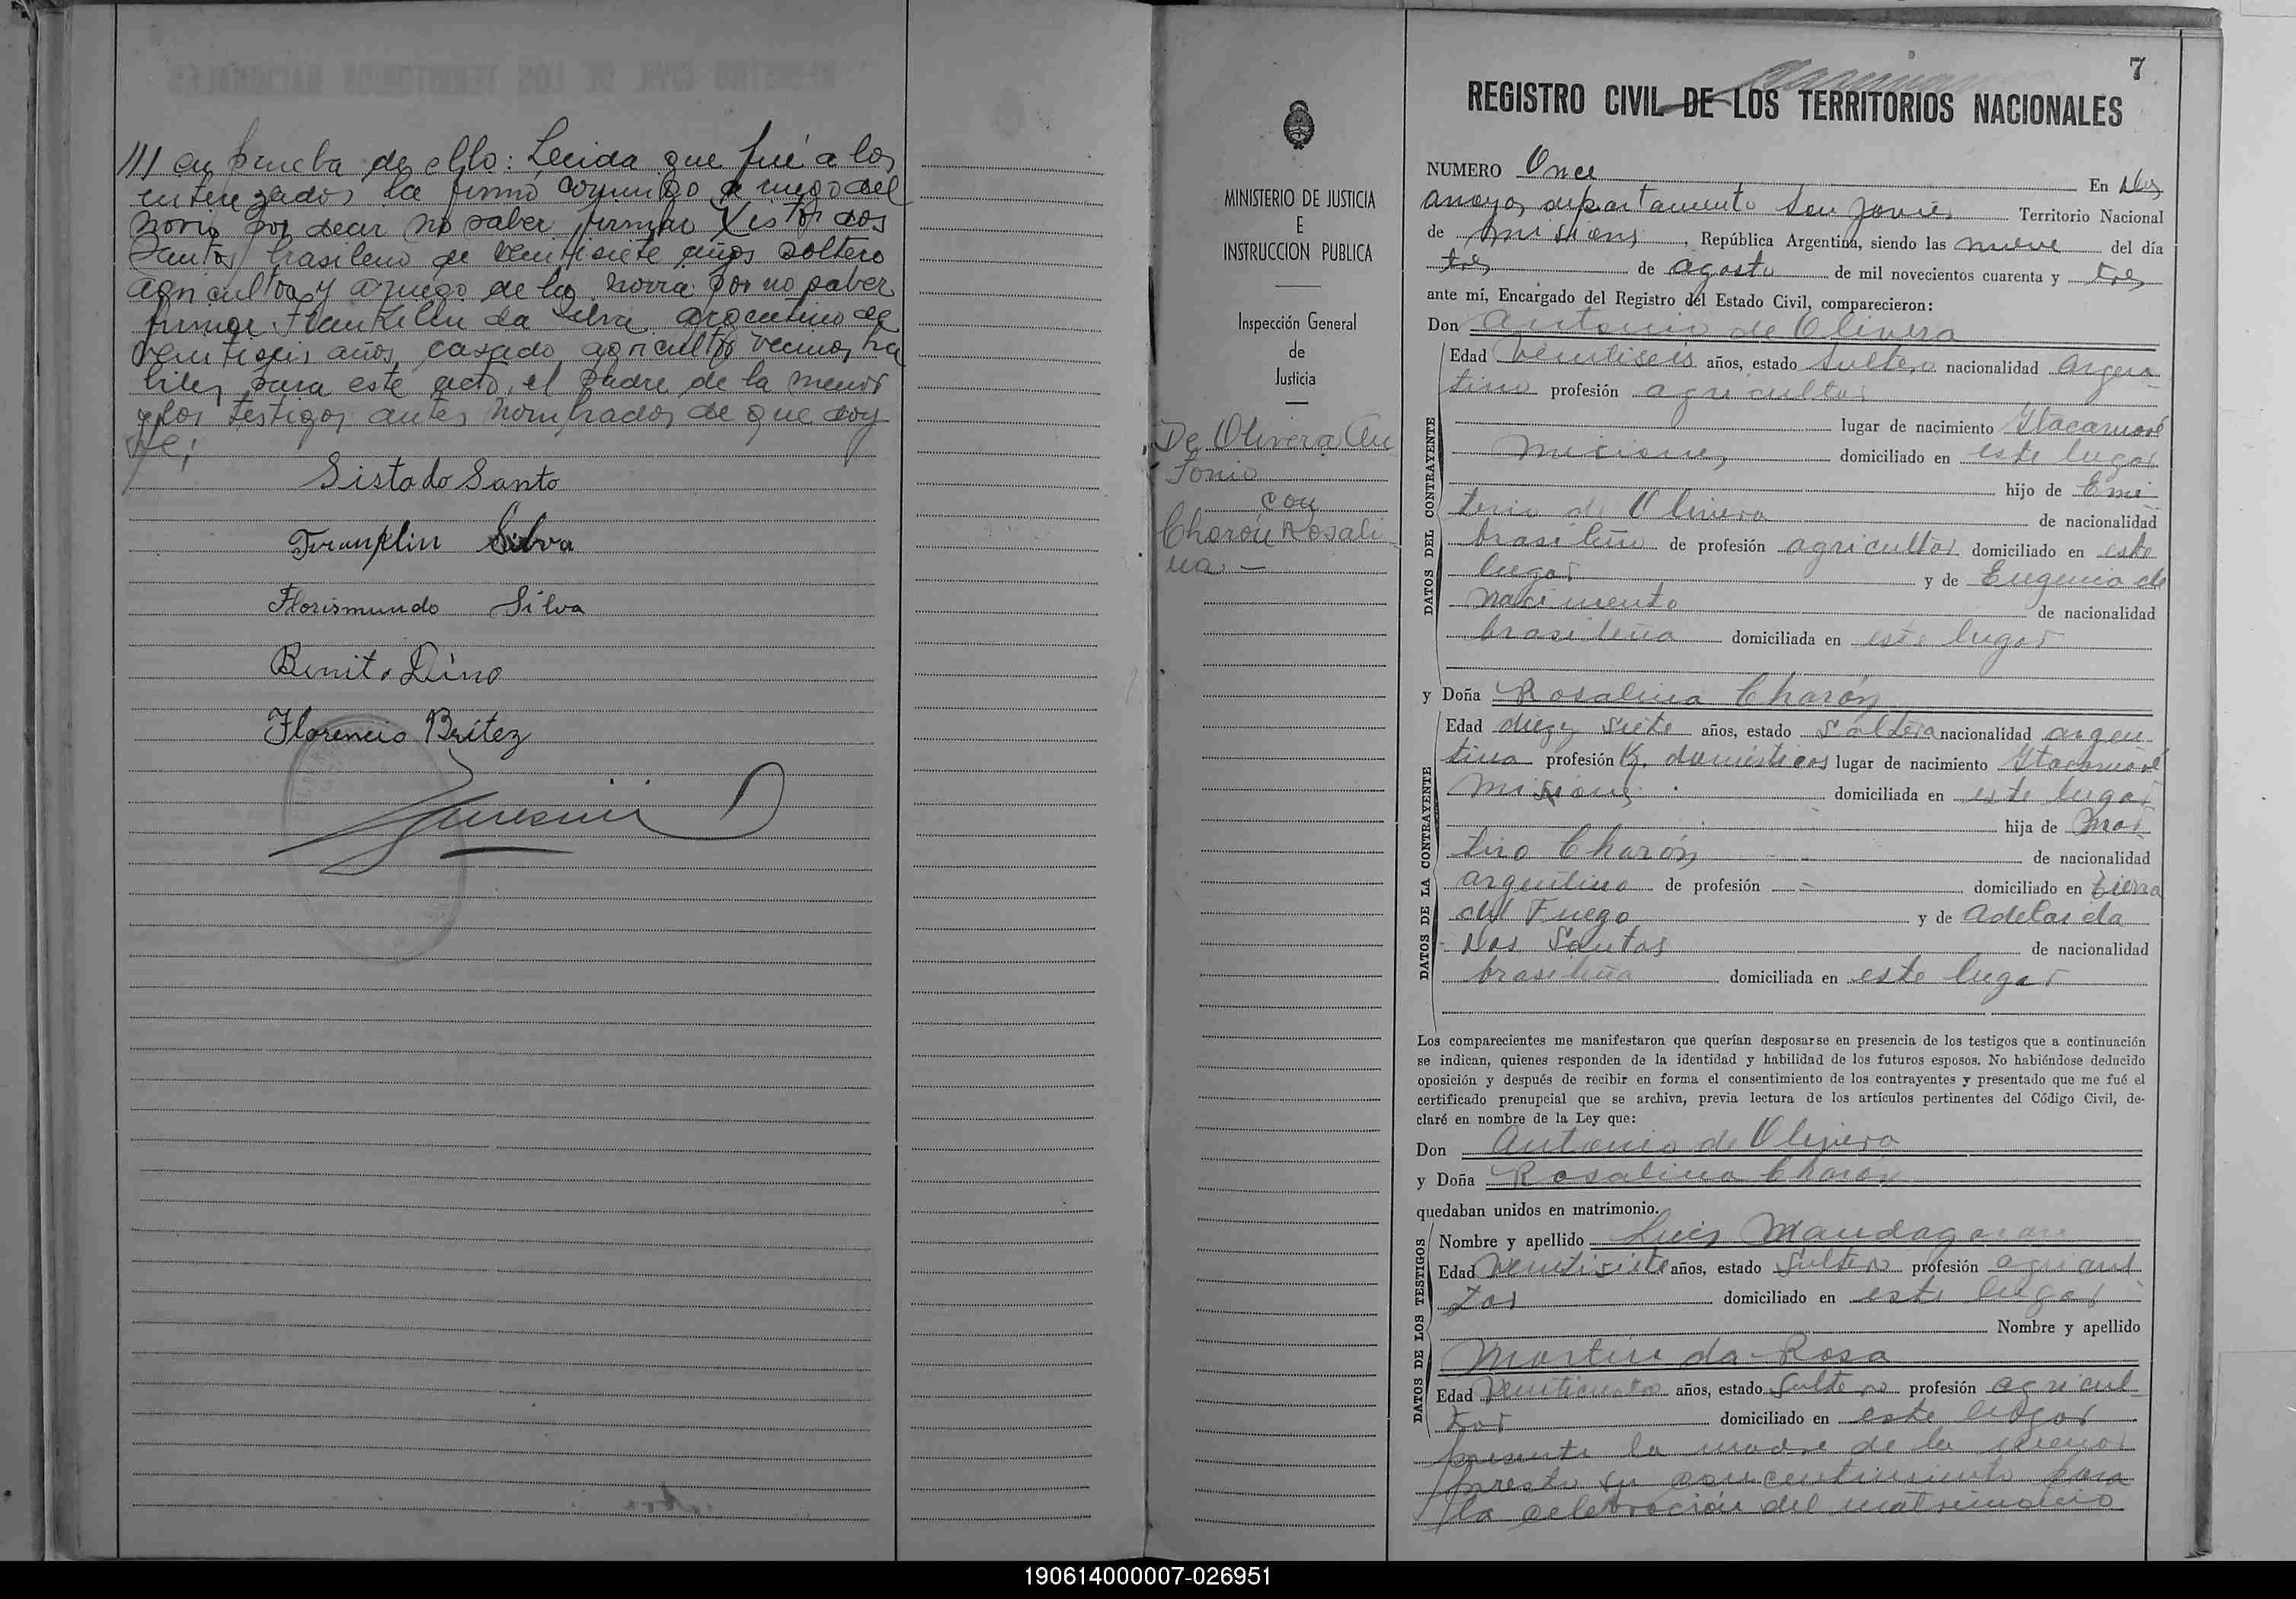 /// en prueba de ello: Leida que fué a los
interezados la firmó conmigo a ruego del
novio por decir no saber firmar Xisto dos
Santos brasileño de veintisiete años soltero
agricultor y a ruego de la novia por no saber
firmar Flankelin da Silva argentino de
veintiseis años, casado, agricultor vecinos, ha
biles para este acto, el padre de la menor
y los testigos antes nombrados de que doy
fe;
Sisto do Santo
Franklin Silva
Florismundo Silva
Benito Dino
Florencio Britez
MINISTERIO DE JUSTICIA
E
INSTRUCCION PUBLICA
Inspección General
de
Justicia
De Olivera An
tonio
con
Charón Rosali
na. —
7
REGISTRO CIVIL DE LOS TERRITORIOS NACIONALES
NUMERO Once En Dos
arroyos departamento San Javier Territorio Nacional
de Misiones, República Argentina, siendo las nueve del día
tres de agosto de mil novecientos cuarenta y tres
ante mí, Encargado del Registro del Estado Civil, comparecieron:
Don Antonio de Olivera
DATOS DEL CONTRAYENTE
Edad veintiseis años, estado soltero nacionalidad argen
tino profesión agricultor
lugar de nacimiento Itacaruaré
Misiones domiciliado en este lugar
hijo de Emi
terio de Olivera de nacionalidad
brasileño de profesión agricultor domiciliado en este
lugar y de Eugenia de
nacimento de nacionalidad
brasileña domiciliada en este lugar
y Doña Rosalina Charón
DATOS DE LA CONTRAYENTE
Edad diez y siete años, estado soltera nacionalidad argen
tina profesión Q. domésticos lugar de nacimiento Itacaruaré
Misiones domiciliada en este lugar
hija de Mar
tino Charón de nacionalidad
argentino de profesión - domiciliado en tierra
del Fuego y de Adelaida
Dos Santos de nacionalidad
brasileña domiciliada en este lugar
Los comparecientes me manifestaron que querían desposarse en presencia de los testigos que a continuación
se indican, quienes responden de la identidad y habilidad de los futuros esposos. No habiéndose deducido
oposición y después de recibir en forma el consentimiento de los contrayentes y presentado que me fué el
certificado prenupcial que se archiva, previa lectura de los artículos pertinentes del Código Civil, de-
claré en nombre de la Ley que:
Don Antonio de Olivera
y Doña Rosalina Charón
quedaban unidos en matrimonio.
DATOS DE LOS TESTIGOS
Nombre y apellido Luis Mandagaran
Edad veintisiete años, estado soltero profesión agricul
tor domiciliado en este lugar
Nombre y apellido
Martin da Rosa
Edad veinticuatro años, estado soltero profesión agricul
tor domiciliado en este lugar
presente la madre de la menor
presto su concentimiento para
la celebración del matrimonio
190614000007-026951